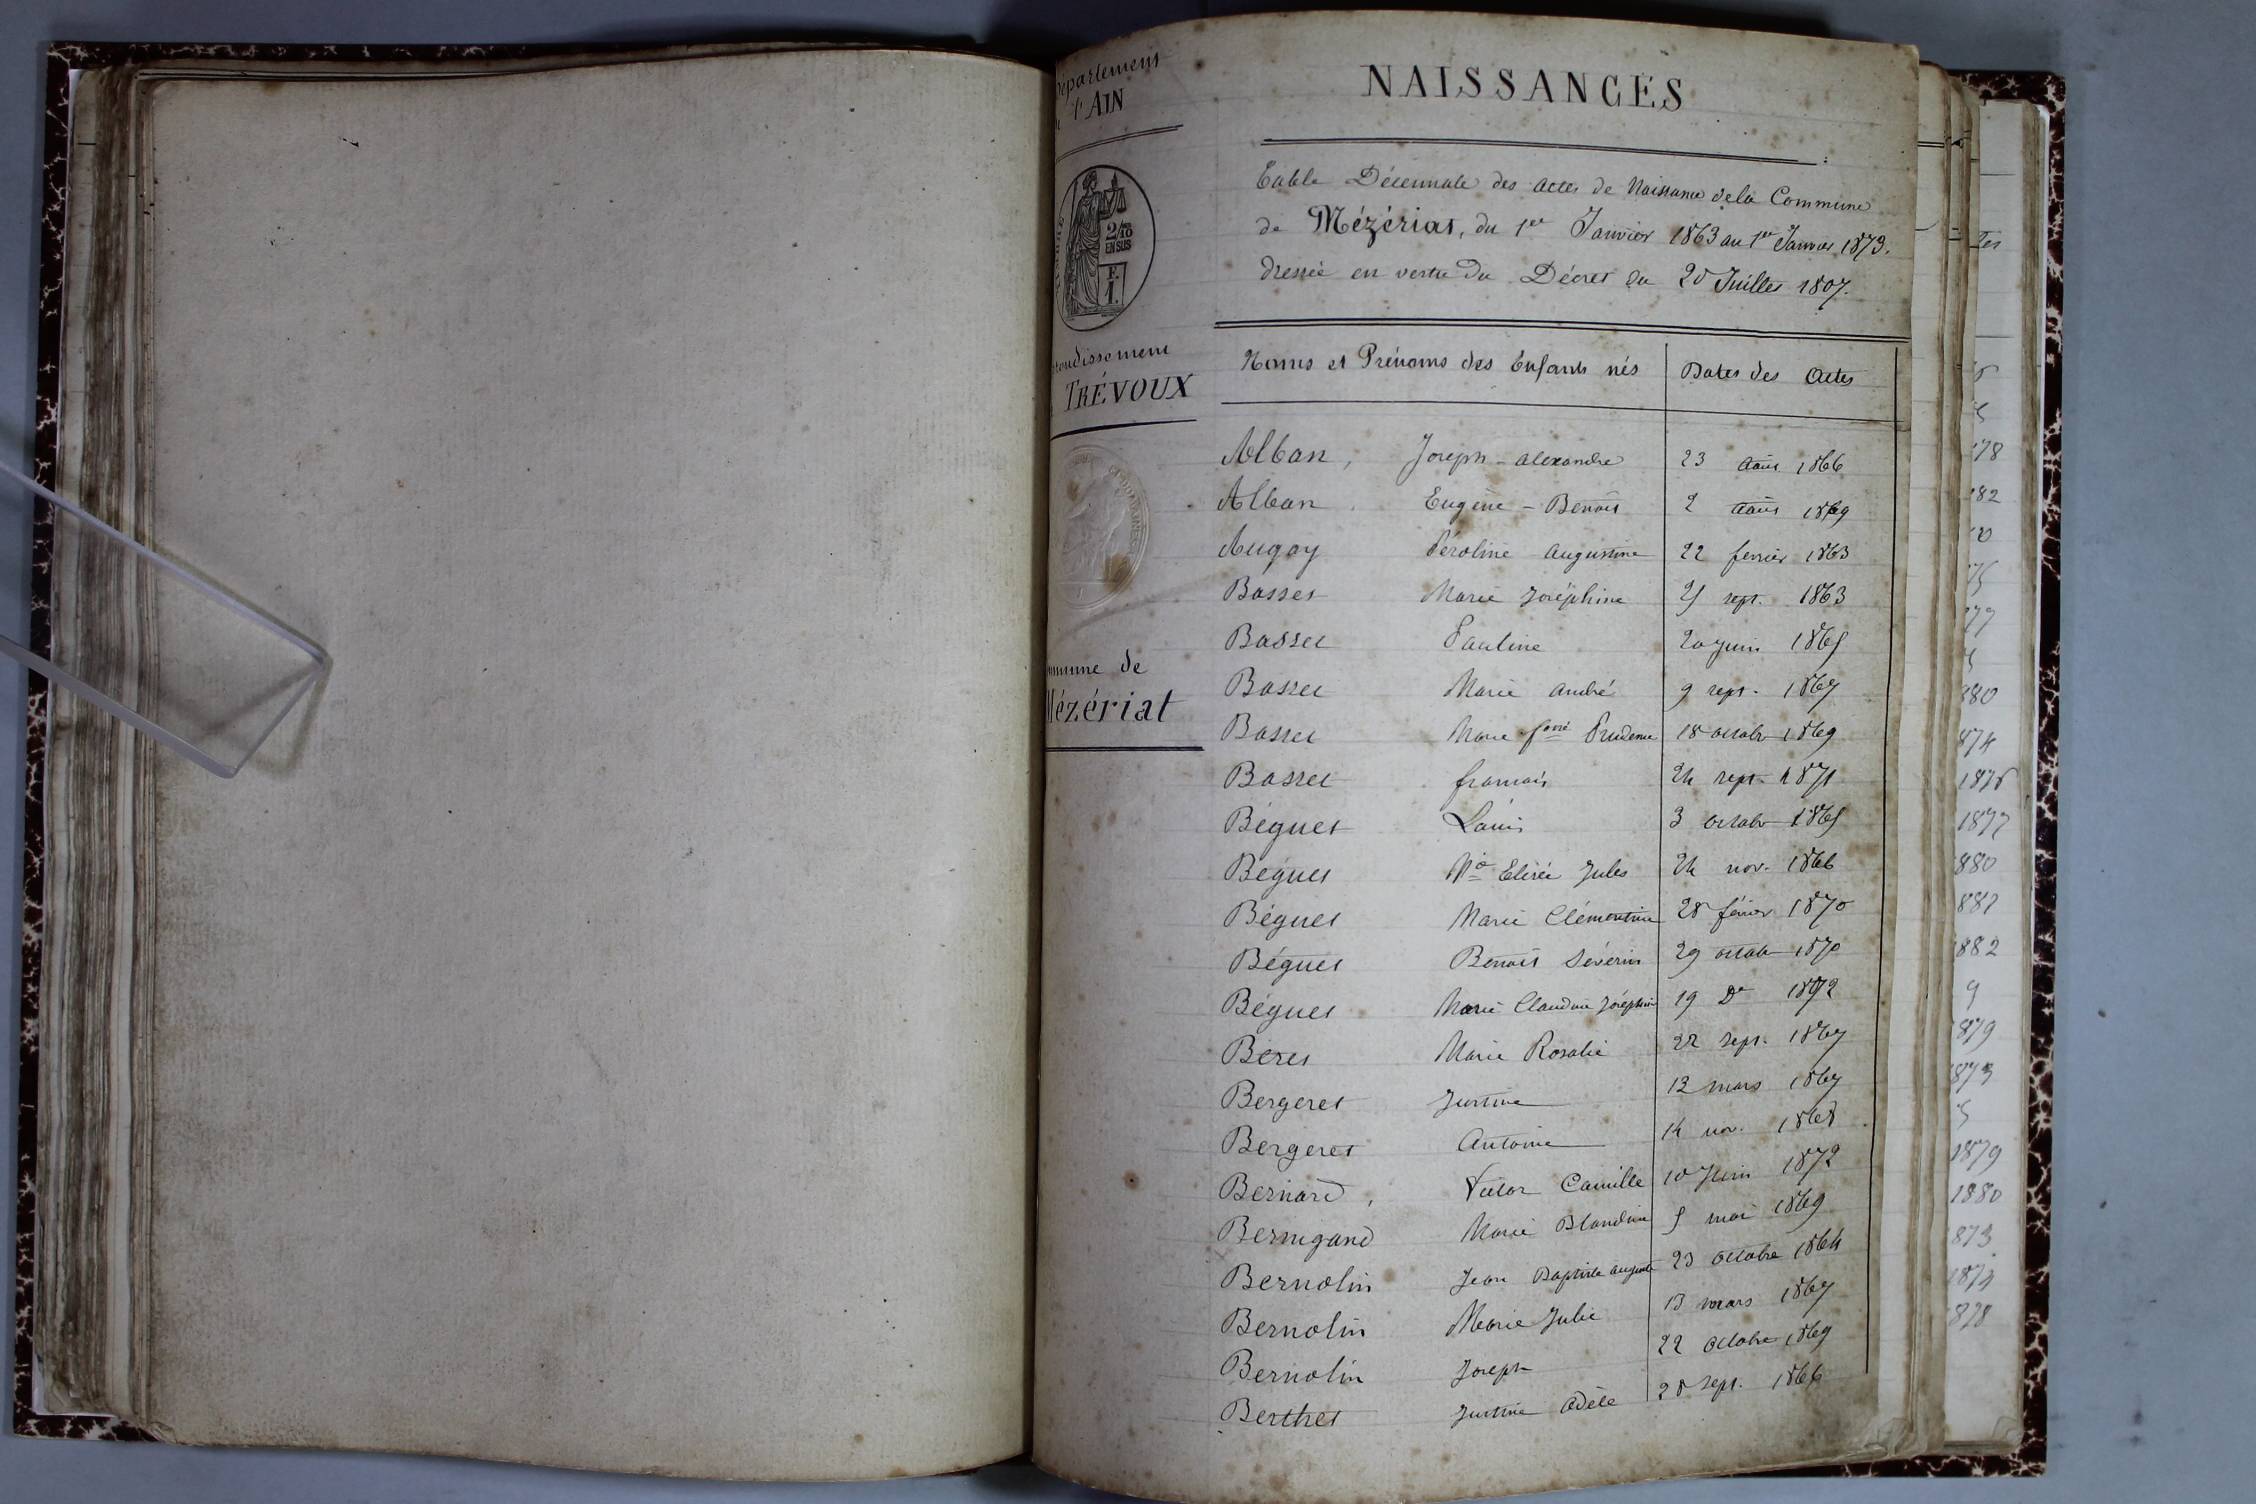 Département
l'AIN
2/10
EN SUS
F.
1.
TRÉVOUX
mmune de
Mézériat
NAISSANCES
Table Décennale des actes de Naissance de la Commune
de Mézériat, du 1er Janvier 1863 au 1er Janvier 1873.
dressée en vertu du Décret du 20 Juillet 1807.
Noms et Prénoms des Enfants nés Dates des Actes
Alban, Joseph - alexandre 23 août 1866
Alban Eugène - Benoit 2 août 1869
Augoy Péroline augustine 22 fevrier 1863
Basset Marie Joséphine 25 sept. 1863
Basset Pauline 20 juin 1865
Basset Marie andré 9 sept. 1867
Basset Marie Prudence 18 octobr 1869
Basset francois 24 sept. 1871
Béguet Louis 3 octobr 1865
Béguet Elisée Jules 24 nov. 1866
Béguet Marie Clémentine 28 février 1870
Béguet Benoit Séverin 29 octob 1870
Béguet Marie Claudine Joséphine 19 De 1872
Beret Marie Rosalie 22 sept. 1867
Bergeret Justine 12 mars 1867
Bergeret Antoine 14 nov. 1868
Bernard, Victor Camille 10 juin 1872
Bernigand Marie Blandine 5 mai 1869
Bernolin Jean Baptiste auguste 23 octobre 1864
Bernolin Marie Julie 13 mars 1867
Bernolin Joseph 22 octobre 1869
Berthet Justine Adèle 28 sept. 1866
1877
880
882
879
1879
1880
873